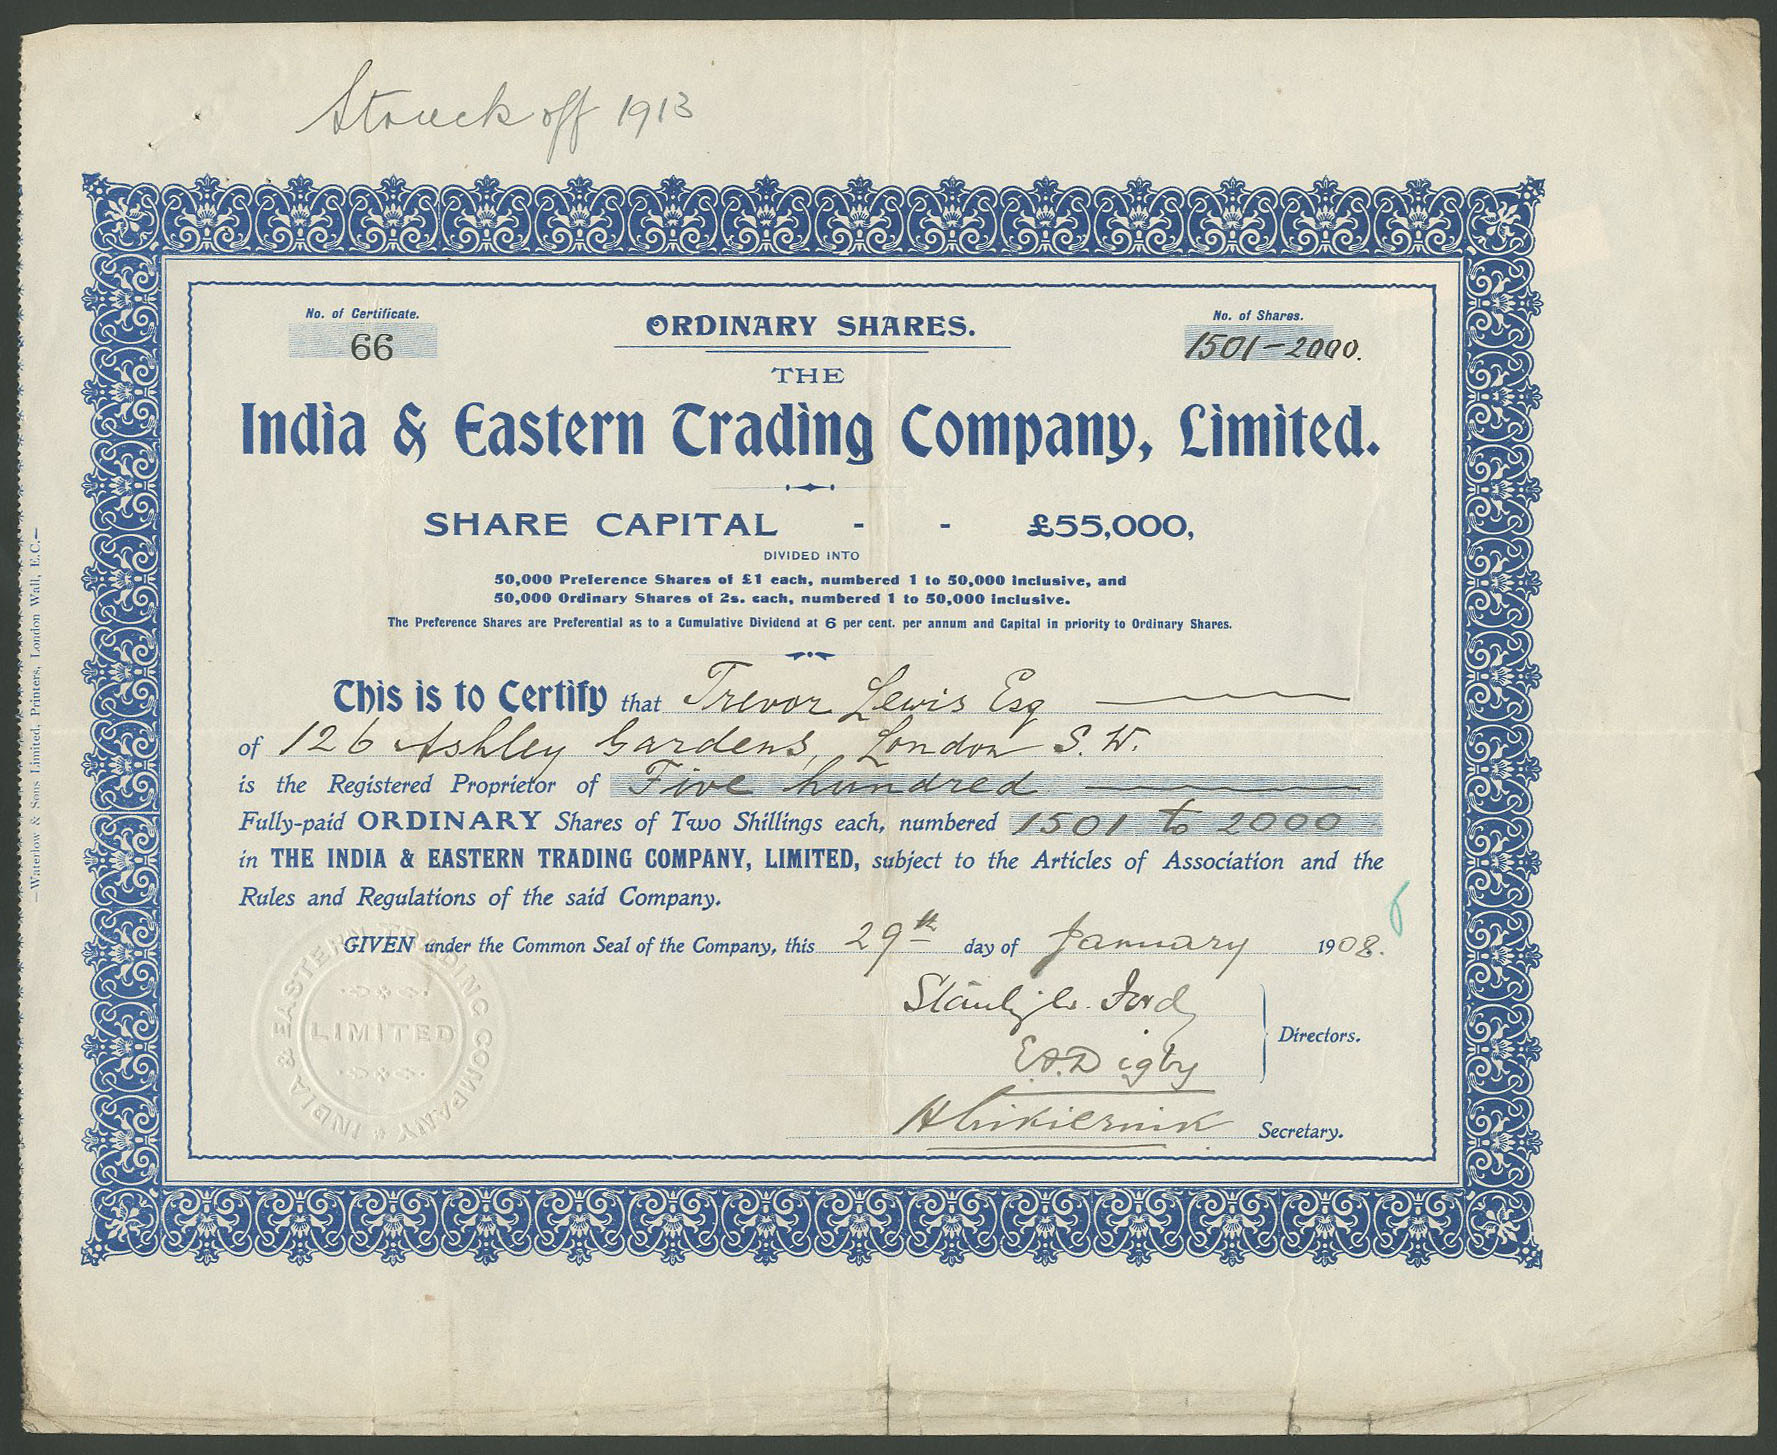 Struck off 1913
No. of Certificate.
66
ORDINARY SHARES.
No. of Shares.
1501-2000.
THE
India & Eastern Trading Company, Limited.
SHARE CAPITAL - - £55,000,
DIVIDED INTO
50,000 Preference Shares of £1 each, numbered 1 to 50,000 inclusive, and
50,000 Ordinary Shares of 2s. each, numbered 1 to 50,000 inclusive.
The Preference Shares are Preferential as to a Cumulative Dividend at 6 per cent. per annum and Capital in priority to Ordinary Shares.
This is to Certify that Trevor Lewis Esq
of 126 Ashley Gardens, London S.W.
is the Registered Proprietor of Five hundred
Fully-paid ORDINARY Shares of Two Shillings each, numbered 1501 to 2000
in THE INDIA & EASTERN TRADING COMPANY, LIMITED, subject to the Articles of Association and the
Rules and Regulations of the said Company.
GIVEN under the Common Seal of the Company, this 29th day of January 1908.
Ford
E.A. Digby
Directors.
Secretary.
INDIA & EASTERN TRADING COMPANY
LIMITED
—Waterlow & Sons Limited, Printers, London Wall, E.C.—